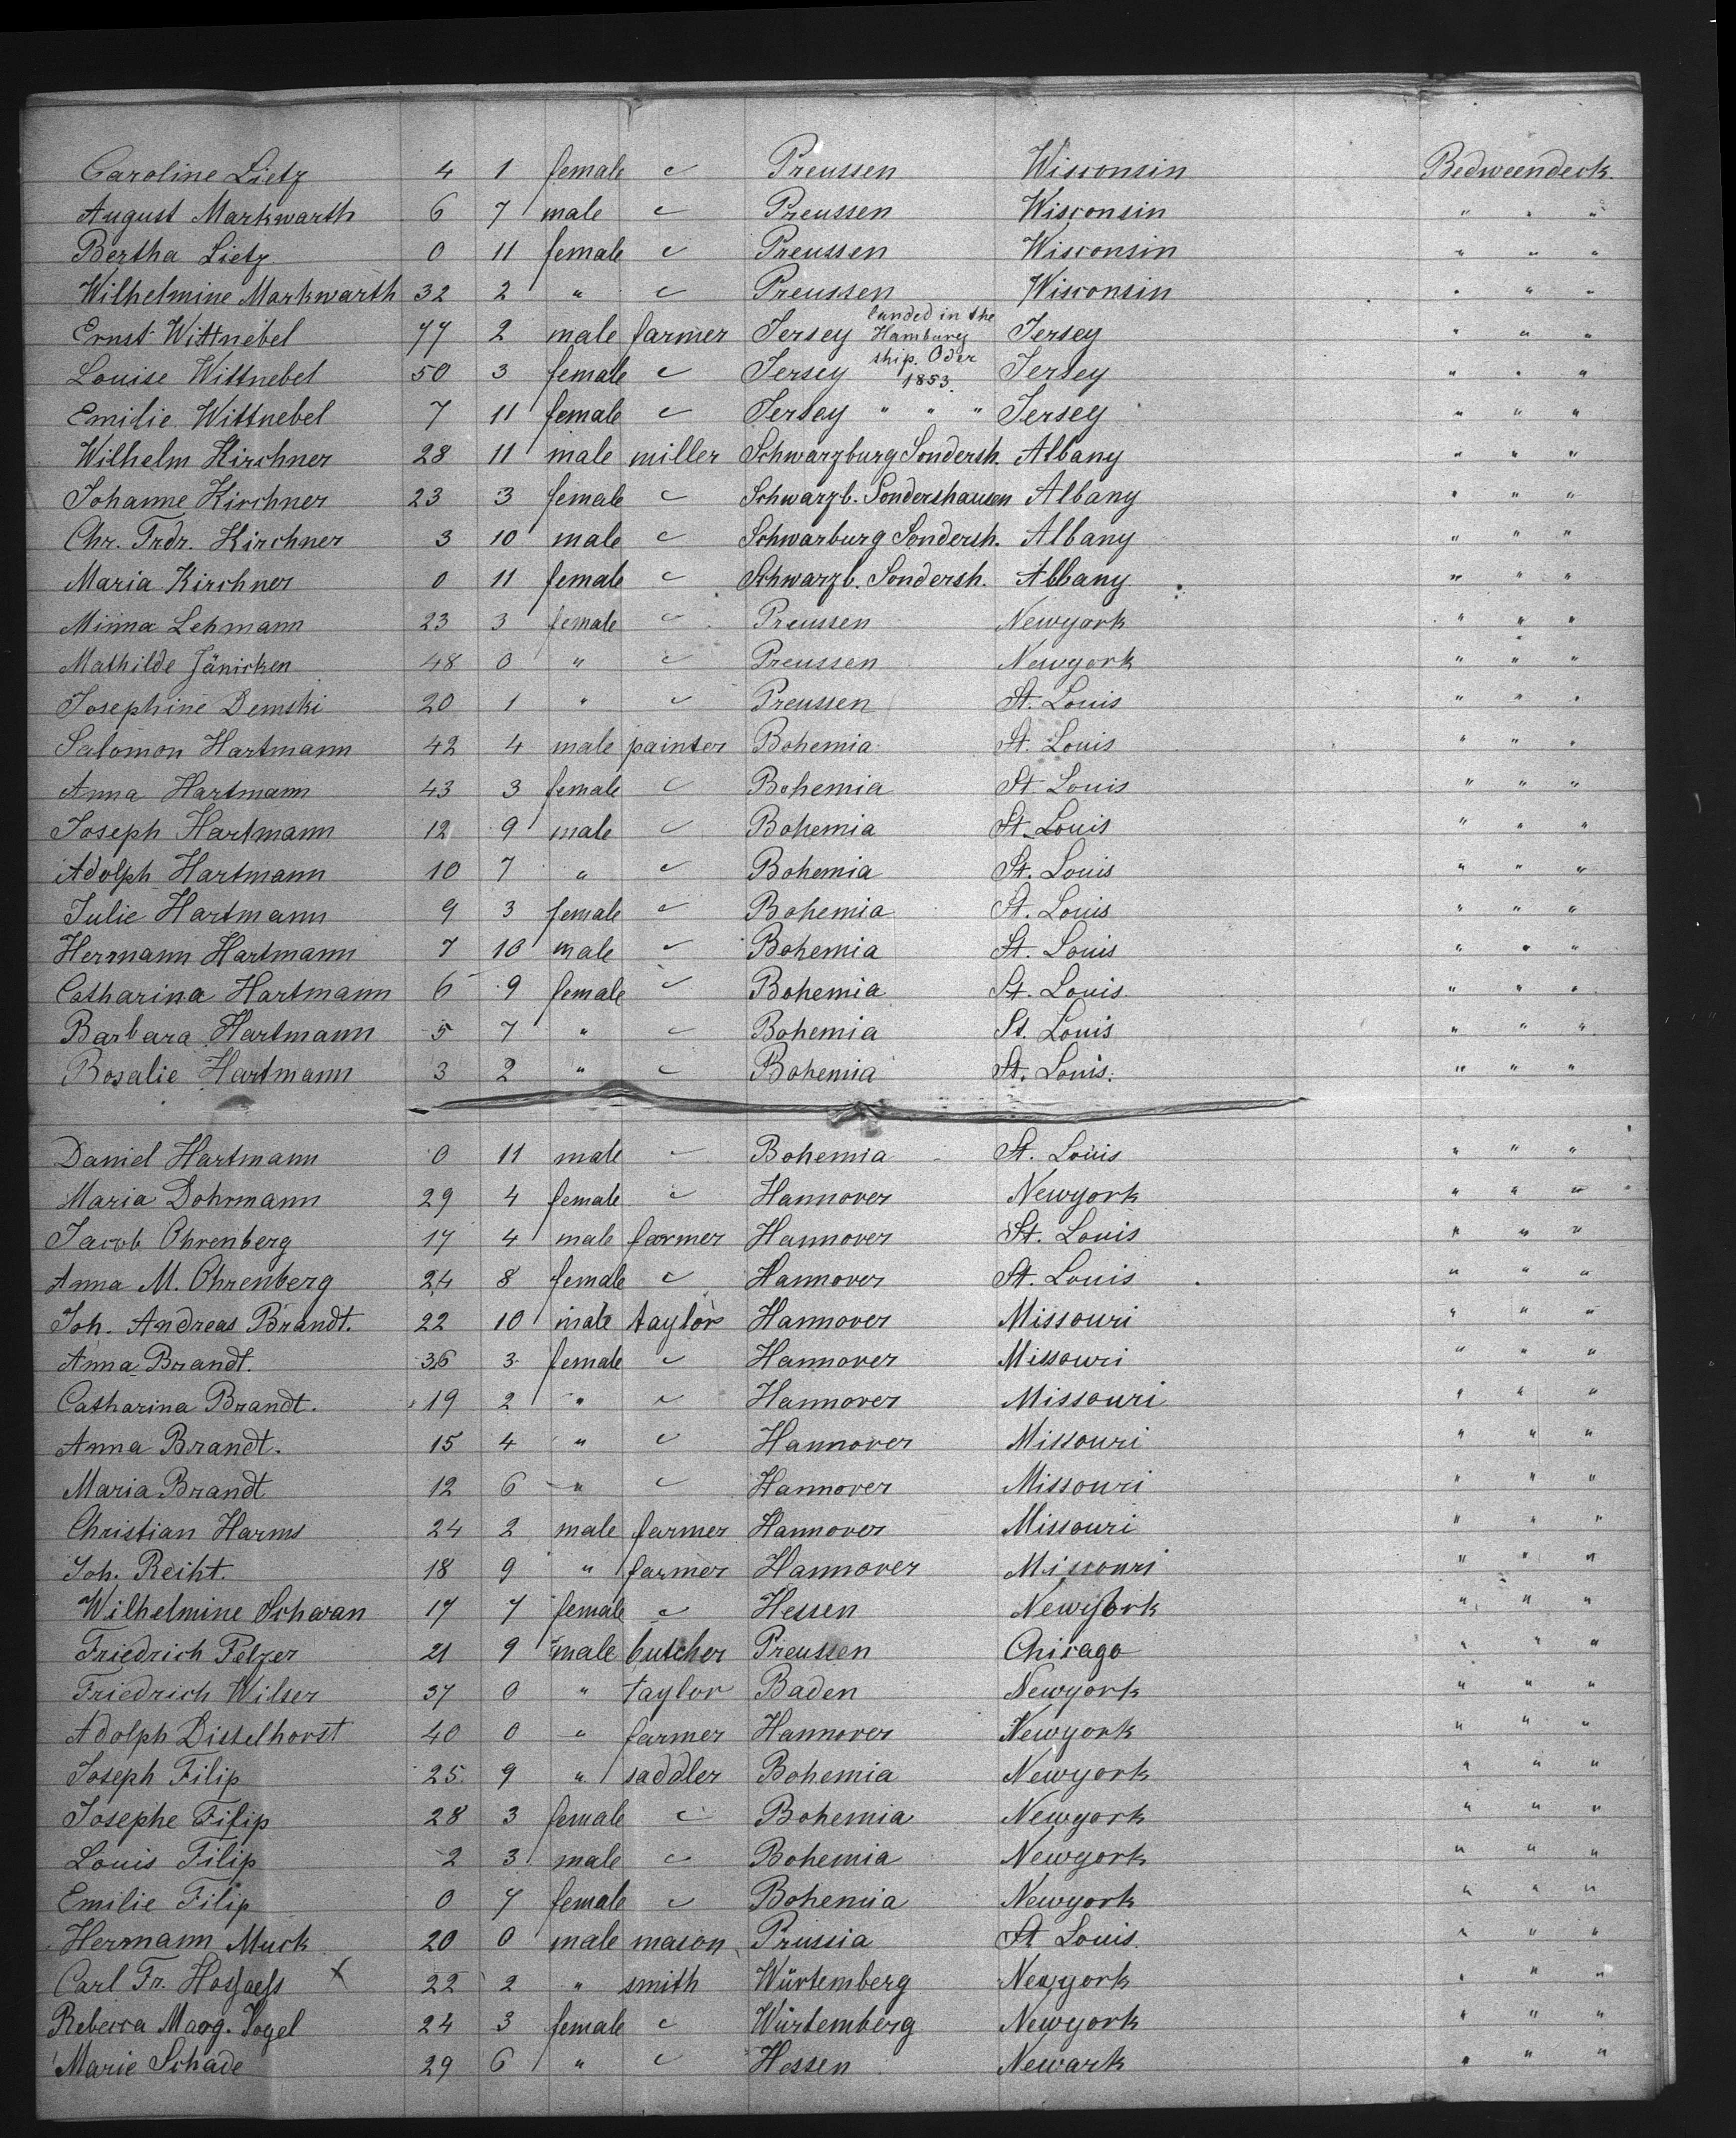 Caroline Lietz 4 1 female c Preussen Wisconsin Bedweendeck.
August Markwarth 6 7 male c Preussen Wisconsin " " "
Bertha Lietz 0 11 female c Preussen Wisconsin " " "
Wilhelmine Markwarth 32 2 " c Preussen Wisconsin " " "
Ernst Wittnebel 77 2 male farmer Jersey landed in the Hamburg ship. Oder 1853. Jersey " " "
Louise Wittnebel 50 3 female c Jersey Jersey " " "
Emilie Wittnebel 7 11 female c Jersey " " " Jersey " " "
Wilhelm Kirchner 28 11 male miller Schwarzburg Sondersh. Albany " " "
Johanne Kirchner 23 3 female c Schwarzb. Sondershausen Albany " " "
Chr. Frdr. Kirchner 3 10 male c Schwarburg Sondersh. Albany " " "
Maria Kirchner 0 11 female c Schwarzb. Sondersh. Albany " " "
Minna Lehmann 23 3 female c Preussen Newyork " " "
Mathilde Jänicken 48 0 " c Preussen Newyork " " "
Josephine Demski 20 1 " c Preussen St. Louis " " "
Salomon Hartmann 42 4 male painter Bohemia St. Louis " " "
Anna Hartmann 43 3 female c Bohemia St Louis " " "
Joseph Hartmann 12 9 male c Bohemia St. Louis " " "
Adolph Hartmann 10 7 " c Bohemia St. Louis " " "
Julie Hartmann 9 3 female c Bohemia St. Louis " " "
Hermann Hartmann 7 10 male c Bohemia St. Louis " " "
Catharina Hartmann 6 9 female c Bohemia St. Louis. " " "
Barbara Hartmann 5 7 " c Bohemia St. Louis " " "
Rosalie Hartmann 3 2 " c Bohemia St. Louis. " " "
Daniel Hartmann 0 11 male c Bohemia St. Louis " " "
Maria Dohrmann 29 4 female c Hannover Newyork " " "
Jacob Ohrenberg 17 4 male farmer Hannover St. Louis " " "
Anna M. Ohrenberg 24 8 female c Hannover St. Louis " " "
Joh. Andreas Brandt. 22 10 male taylor Hannover Missouri " " "
Anna Brandt. 36 3 female c Hannover Missouri " " "
Catharina Brandt. 19 2 " c Hannover Missouri " " "
Anna Brandt. 15 4 " c Hannover Missouri " " "
Maria Brandt 12 6 " c Hannover Missouri " " "
Christian Harms 24 2 male farmer Hannover Missouri " " "
Joh. Reiht. 18 9 " farmer Hannover Missouri " " "
Wilhelmine Schwan 17 7 female c Hessen Newyork " " "
Friedrich Pelzer 21 9 male butcher Preussen Chicago " " "
Friedrich Wilser 37 0 " taylor Baden Newyork " " "
Adolph Disselhorst 40 0 " farmer Hannover Newyork " " "
Joseph Filip 25 9 " saddler Bohemia Newyork " " "
Josephe Filip 28 3 female c Bohemia Newyork " " "
Louis Filip 2 3 male c Bohemia Newyork " " "
Emilie Filip 0 7 female c Bohemia Newyork " " "
Hermann Muck 20 0 male mason Prussia St Louis. " " "
Carl Fr. x 22 2 " smith Würtemberg Newyork " " "
Rebecca Marg. Vogel 24 3 female c Würtemberg Newyork " " "
Marie Schade 29 6 " c Hessen Newark " " "